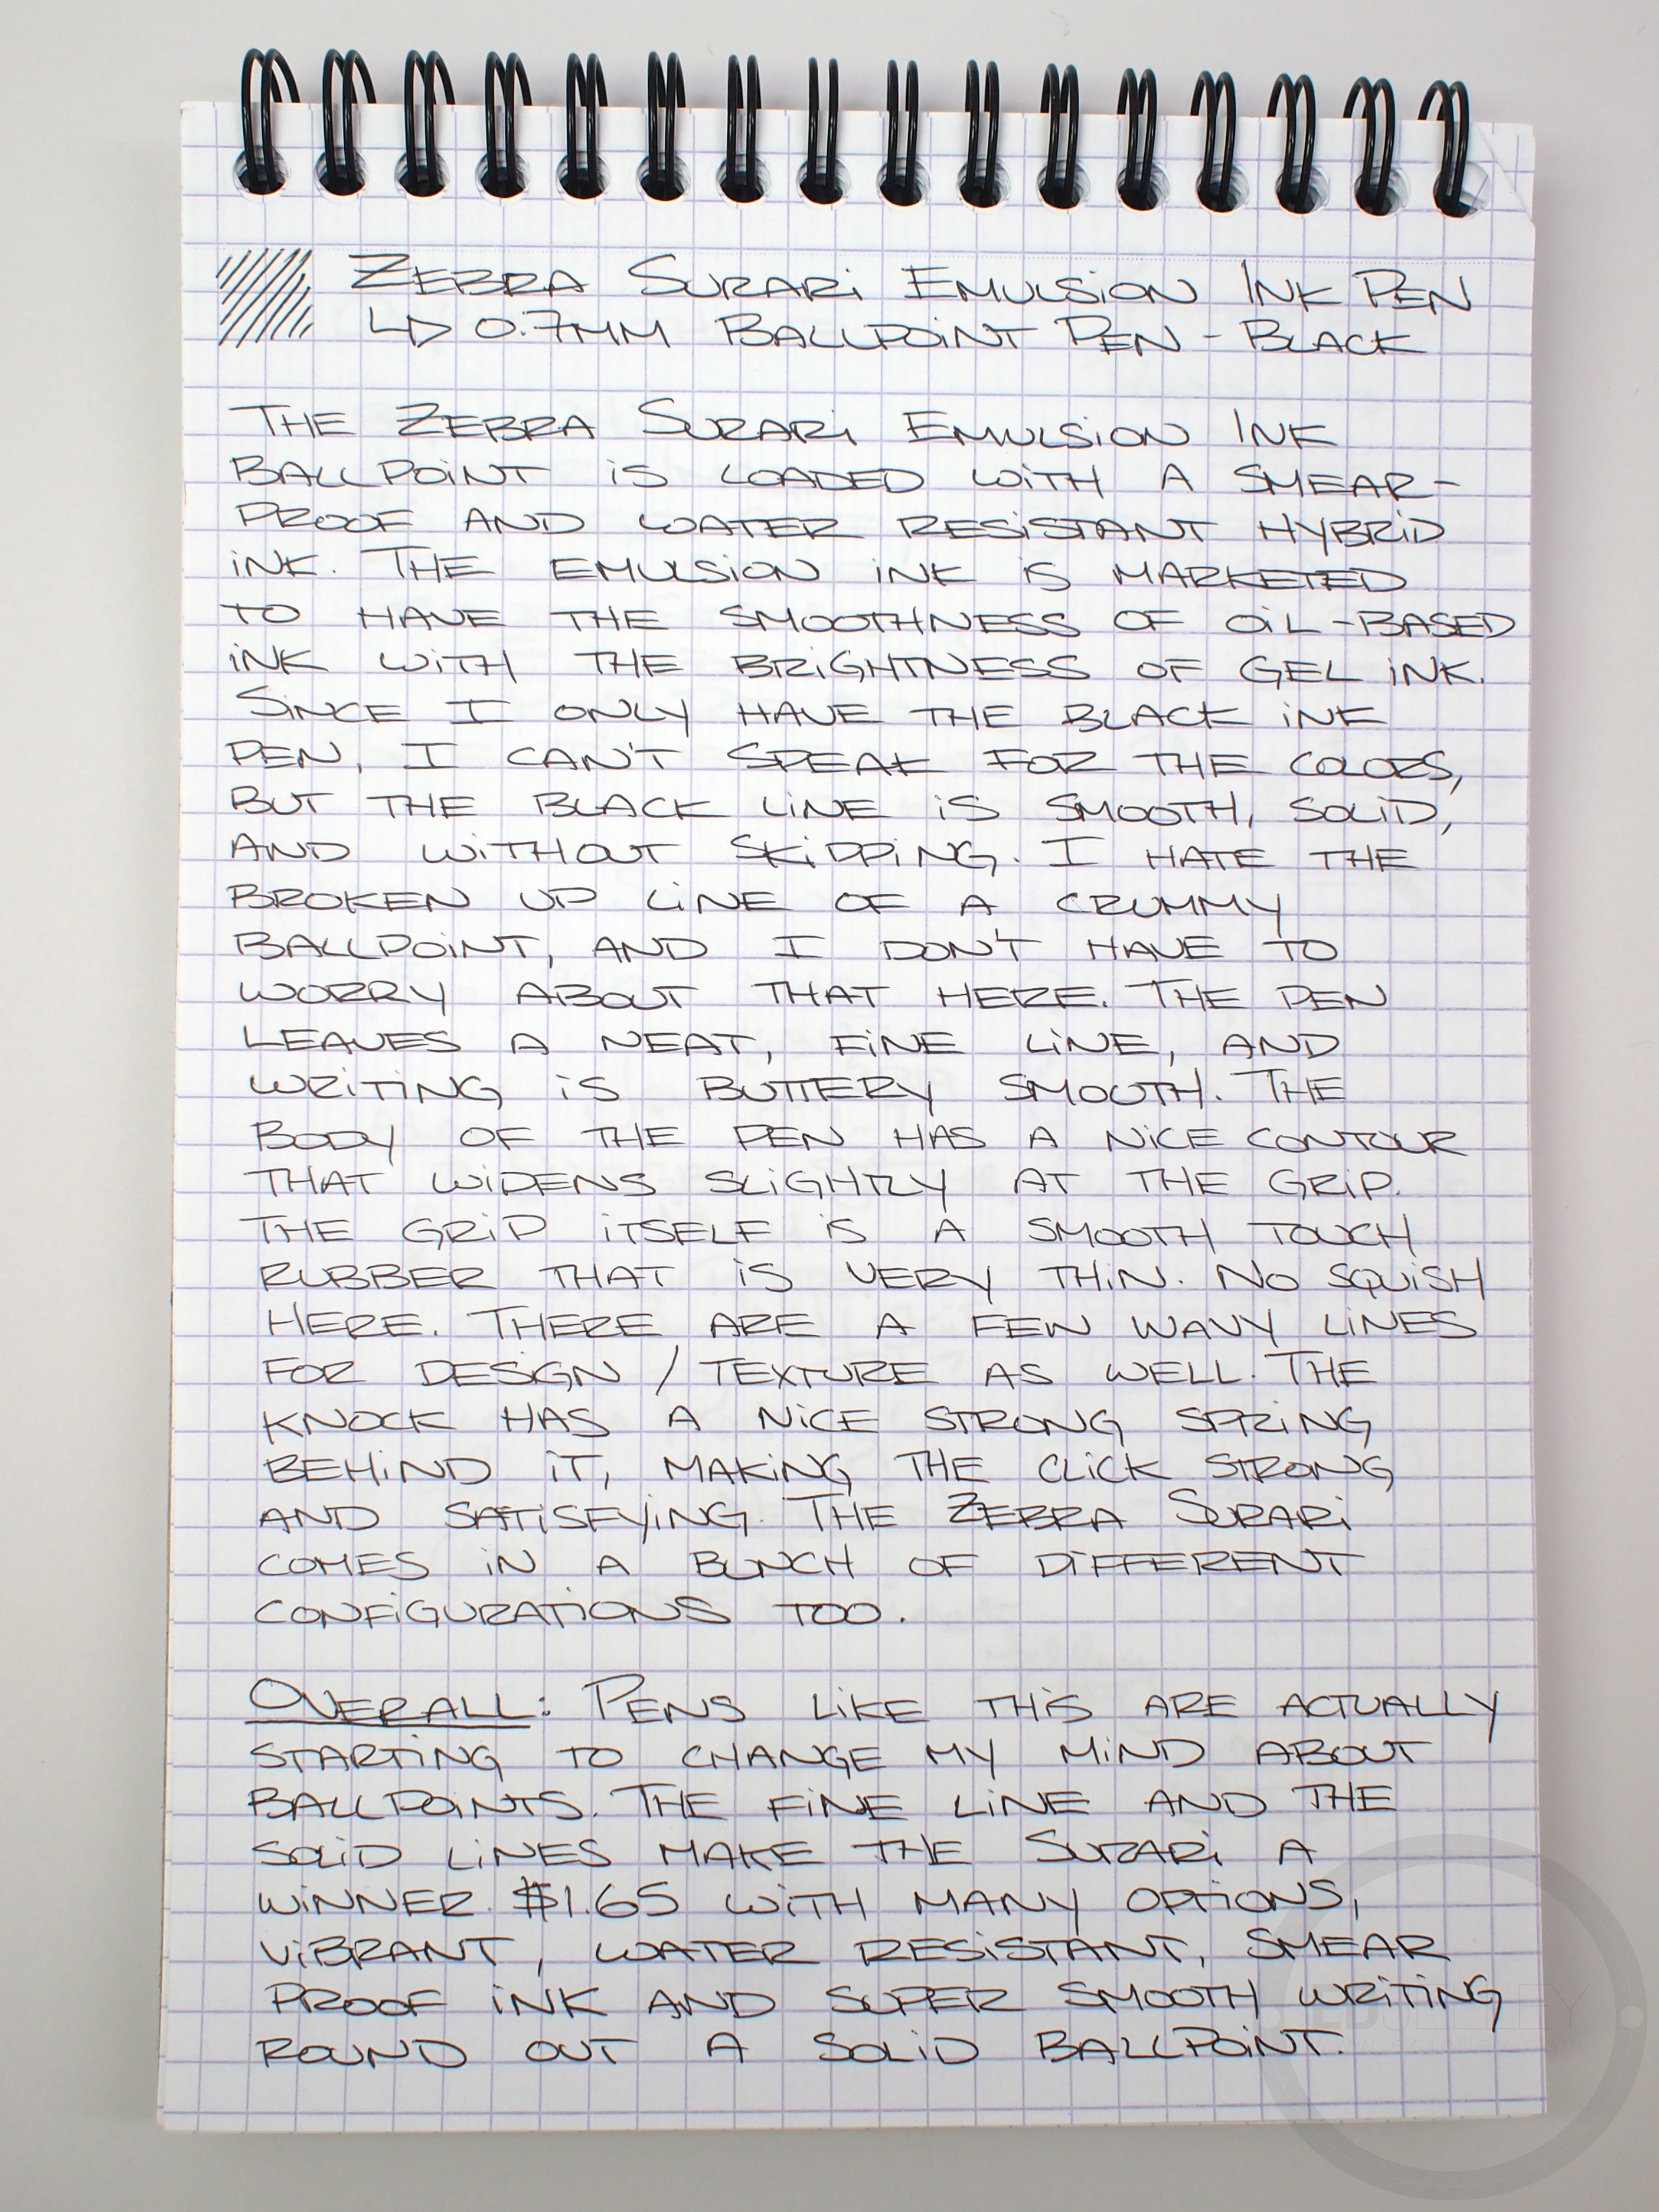 Zebra Surari Emulsion Ink Pen
↳ 0.7mm Ballpoint Pen - Black
The Zebra Surari Emulsion Ink
Ballpoint is loaded with a smear-
proof and water resistant hybrid
ink. The emulsion ink is marketed
to have the smoothness of oil-based
ink with the brightness of gel ink.
Since I only have the black ink
pen, I can't speak for the colors,
but the black line is smooth, solid,
and without skipping. I hate the
broken up line of a crummy
ballpoint, and I don't have to
worry about that here. The pen
leaves a neat, fine line, and
writing is buttery smooth. The
body of the pen has a nice contour
that widens slightly at the grip.
The grip itself is a smooth touch
rubber that is very thin. No squish
here. There are a few wavy lines
for design / texture as well. The
knock has a nice strong spring
behind it, making the click strong
and satisfying. The Zebra Surari
comes in a bunch of different
configurations too.
Overall: Pens like this are actually
starting to change my mind about
ballpoints. The fine line and the
solid lines make the Surari a
winner. $1.65 with many options,
vibrant, water resistant, smear
proof ink and super smooth writing
round out a solid ballpoint.